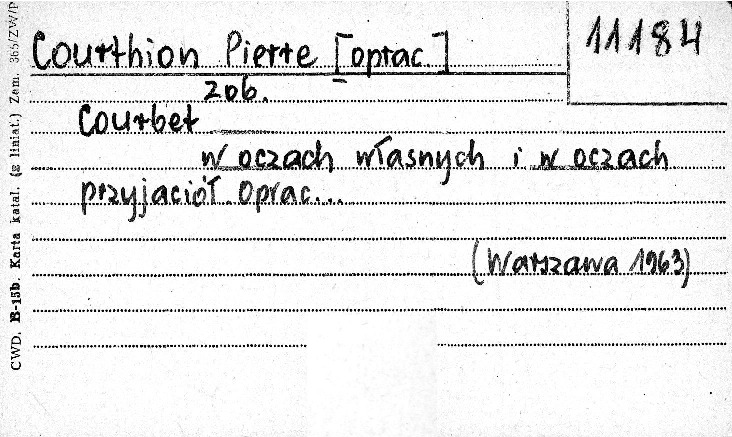 Courthion Pierre [oprac.]
11184
zob.
Courbet
w oczach własnych i w oczach
przyjaciół. Oprac...
(Warszawa 1963)
CWD. B-15b. Karta katal. (z liniat.) Zam. 365/ZW/P